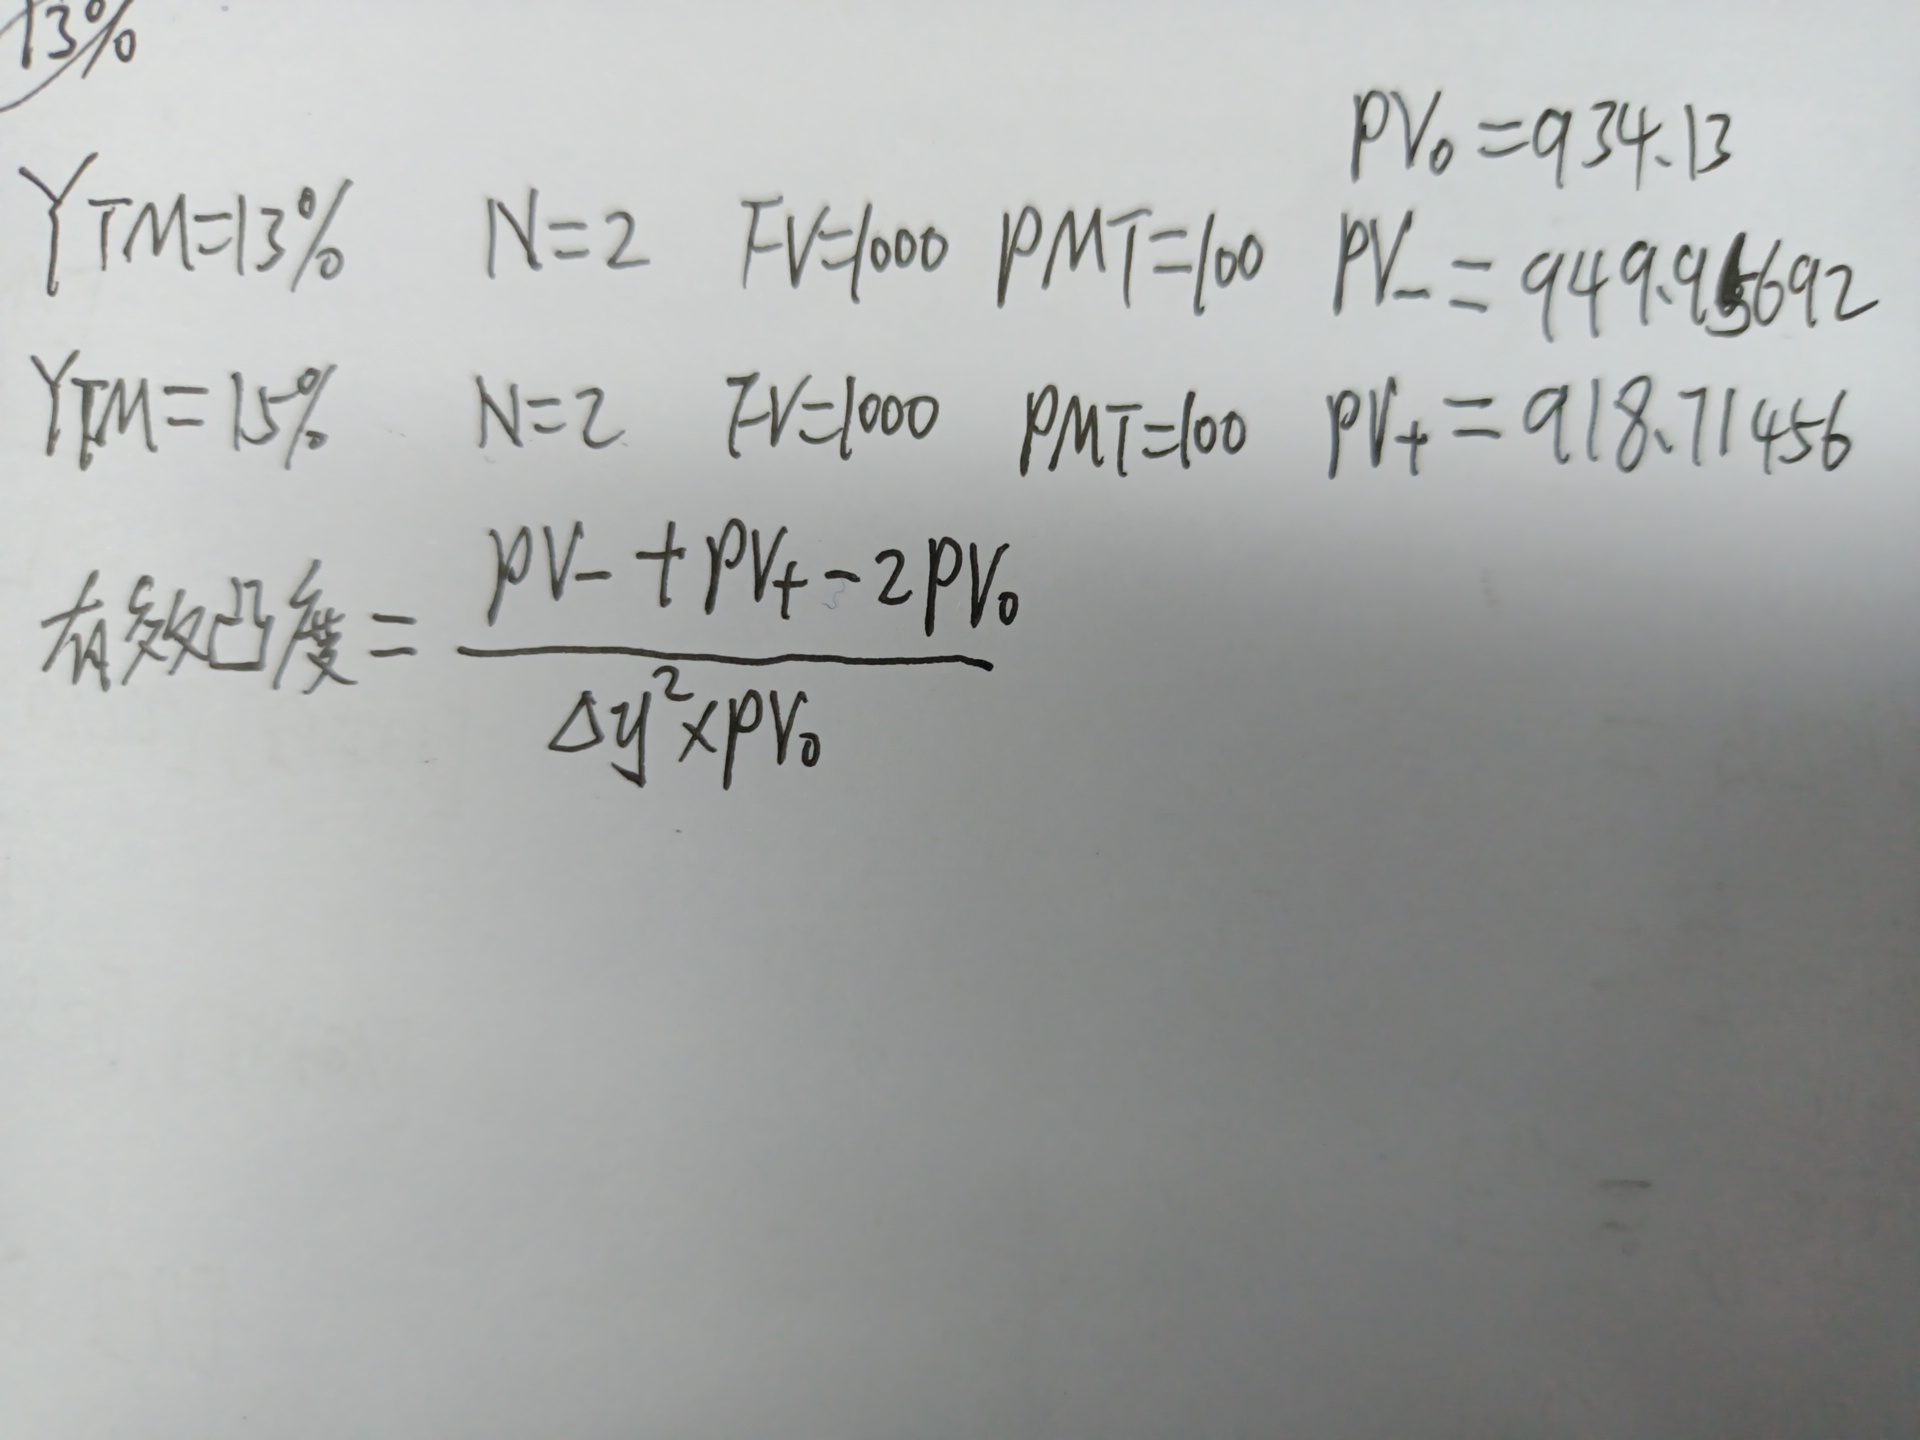 13%
PV₀=934.13
YTM=13% N=2 FV=1000 PMT=100 PV₋=949.95692
YTM=15% N=2 FV=1000 PMT=100 PV₊=918.71456
有效凸度= PV₋+PV₊-2PV₀
Δy²×PV₀